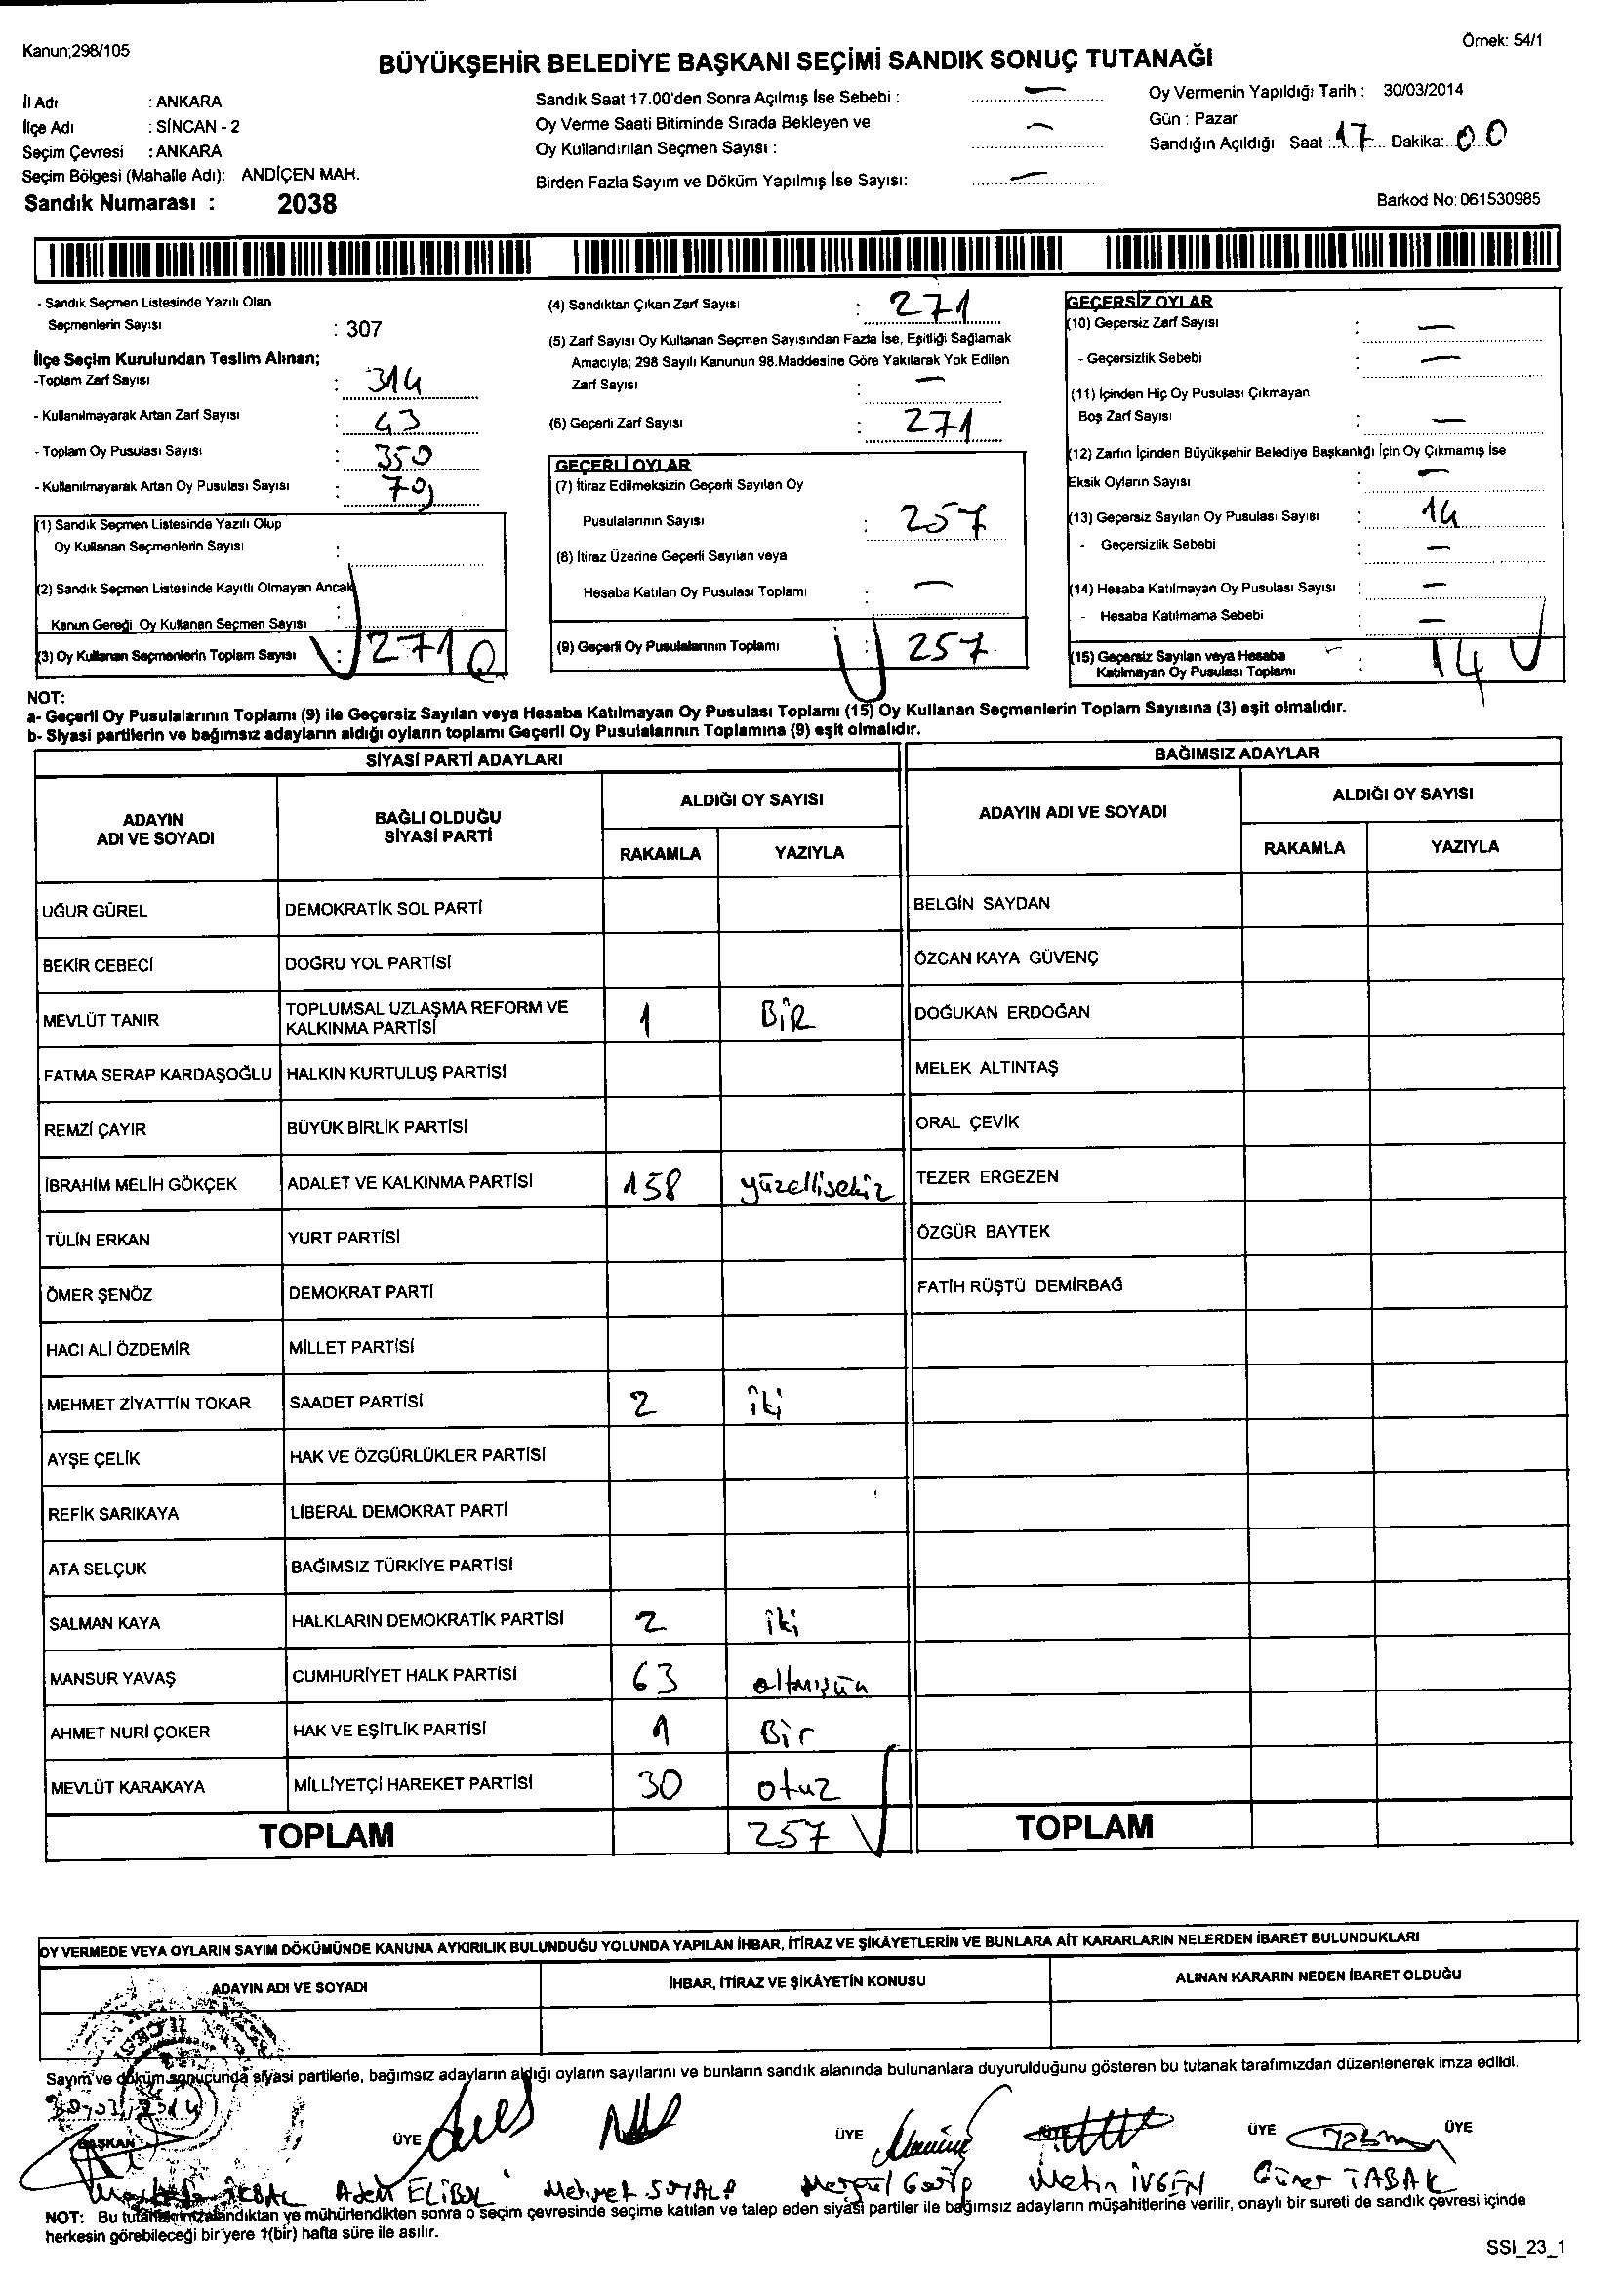 Kanun;298/105
Örnek: 54/1
BÜYÜKŞEHİR BELEDİYE BAŞKANI SEÇİMİ SANDIK SONUÇ TUTANAĞI
İl Adı : ANKARA
İlçe Adı : SİNCAN - 2
Seçim Çevresi : ANKARA
Seçim Bölgesi (Mahalle Adı): ANDİÇEN MAH.
Sandık Numarası : 2038
Sandık Saat 17.00'den Sonra Açılmış İse Sebebi : —
Oy Verme Saati Bitiminde Sırada Bekleyen ve
Oy Kullandırılan Seçmen Sayısı : —
Birden Fazla Sayım ve Döküm Yapılmış İse Sayısı: —
Oy Vermenin Yapıldığı Tarih : 30/03/2014
Gün : Pazar
Sandığın Açıldığı Saat : 17 Dakika: 00
Barkod No: 061530985
- Sandık Seçmen Listesinde Yazılı Olan
Seçmenlerin Sayısı : 307
İlçe Seçim Kurulundan Teslim Alınan;
-Toplam Zarf Sayısı : 314
- Kullanılmayarak Artan Zarf Sayısı : 43
- Toplam Oy Pusulası Sayısı : 350
- Kullanılmayarak Artan Oy Pusulası Sayısı : 79
(1) Sandık Seçmen Listesinde Yazılı Olup
Oy Kullanan Seçmenlerin Sayısı :
(2) Sandık Seçmen Listesinde Kayıtlı Olmayan Ancak
Kanun Gereği Oy Kullanan Seçmen Sayısı :
(3) Oy Kullanan Seçmenlerin Toplam Sayısı : 271
(4) Sandıktan Çıkan Zarf Sayısı : 271
(5) Zarf Sayısı Oy Kullanan Seçmen Sayısından Fazla İse, Eşitliği Sağlamak
Amacıyla; 298 Sayılı Kanunun 98.Maddesine Göre Yakılarak Yok Edilen
Zarf Sayısı : —
(6) Geçerli Zarf Sayısı : 271
GEÇERLİ OYLAR
(7) İtiraz Edilmeksizin Geçerli Sayılan Oy
Pusulalarının Sayısı : 257
(8) İtiraz Üzerine Geçerli Sayılan veya
Hesaba Katılan Oy Pusulası Toplamı : —
(9) Geçerli Oy Pusulalarının Toplamı : 257
GEÇERSİZ OYLAR
(10) Geçersiz Zarf Sayısı : —
- Geçersizlik Sebebi : —
(11) İçinden Hiç Oy Pusulası Çıkmayan
Boş Zarf Sayısı : —
(12) Zarfın İçinden Büyükşehir Belediye Başkanlığı İçin Oy Çıkmamış İse
Eksik Oyların Sayısı : —
(13) Geçersiz Sayılan Oy Pusulası Sayısı : 14
- Geçersizlik Sebebi : —
(14) Hesaba Katılmayan Oy Pusulası Sayısı : —
- Hesaba Katılmama Sebebi : —
(15) Geçersiz Sayılan veya Hesaba
Katılmayan Oy Pusulası Toplamı : 14
NOT:
a- Geçerli Oy Pusulalarının Toplamı (9) ile Geçersiz Sayılan veya Hesaba Katılmayan Oy Pusulası Toplamı (15) Oy Kullanan Seçmenlerin Toplam Sayısına (3) eşit olmalıdır.
b- Siyasi partilerin ve bağımsız adayların aldığı oyların toplamı Geçerli Oy Pusulalarının Toplamına (9) eşit olmalıdır.
SİYASİ PARTİ ADAYLARI
ADAYIN ADI VE SOYADI BAĞLI OLDUĞU SİYASİ PARTİ ALDIĞI OY SAYISI
RAKAMLA YAZIYLA
UĞUR GÜREL DEMOKRATİK SOL PARTİ
BEKİR CEBECİ DOĞRU YOL PARTİSİ
MEVLÜT TANIR TOPLUMSAL UZLAŞMA REFORM VE KALKINMA PARTİSİ 1 BİR
FATMA SERAP KARDAŞOĞLU HALKIN KURTULUŞ PARTİSİ
REMZİ ÇAYIR BÜYÜK BİRLİK PARTİSİ
İBRAHİM MELİH GÖKÇEK ADALET VE KALKINMA PARTİSİ 158 yüzellisekiz
TÜLİN ERKAN YURT PARTİSİ
ÖMER ŞENÖZ DEMOKRAT PARTİ
HACI ALİ ÖZDEMİR MİLLET PARTİSİ
MEHMET ZİYATTİN TOKAR SAADET PARTİSİ 2 iki
AYŞE ÇELİK HAK VE ÖZGÜRLÜKLER PARTİSİ
REFİK SARIKAYA LİBERAL DEMOKRAT PARTİ
ATA SELÇUK BAĞIMSIZ TÜRKİYE PARTİSİ
SALMAN KAYA HALKLARIN DEMOKRATİK PARTİSİ 2 iki
MANSUR YAVAŞ CUMHURİYET HALK PARTİSİ 63
AHMET NURİ ÇOKER HAK VE EŞİTLİK PARTİSİ 1 Bir
MEVLÜT KARAKAYA MİLLİYETÇİ HAREKET PARTİSİ 30 otuz
TOPLAM 257
BAĞIMSIZ ADAYLAR
ADAYIN ADI VE SOYADI ALDIĞI OY SAYISI
RAKAMLA YAZIYLA
BELGİN SAYDAN
ÖZCAN KAYA GÜVENÇ
DOĞUKAN ERDOĞAN
MELEK ALTINTAŞ
ORAL ÇEVİK
TEZER ERGEZEN
ÖZGÜR BAYTEK
FATİH RÜŞTÜ DEMİRBAĞ
TOPLAM
OY VERMEDE VEYA OYLARIN SAYIM DÖKÜMÜNDE KANUNA AYKIRILIK BULUNDUĞU YOLUNDA YAPILAN İHBAR, İTİRAZ VE ŞİKÂYETLERİN VE BUNLARA AİT KARARLARIN NELERDEN İBARET BULUNDUKLARI
ADAYIN ADI VE SOYADI İHBAR, İTİRAZ VE ŞİKÂYETİN KONUSU ALINAN KARARIN NEDEN İBARET OLDUĞU
Sayım ve döküm sonucunda siyasi partilerle, bağımsız adayların aldığı oyların sayılarını ve bunların sandık alanında bulunanlara duyurulduğunu gösteren bu tutanak tarafımızdan düzenlenerek imza edildi.
30/03/2014
BAŞKAN ÜYE ÜYE ÜYE ÜYE
Adem ELİBOL Mehmet SOYALP Metin İVGEN Güner TABAK
NOT: Bu tutanak imzalandıktan ve mühürlendikten sonra o seçim çevresinde seçime katılan ve talep eden siyasi partiler ile bağımsız adayların müşahitlerine verilir, onaylı bir sureti de sandık çevresi içinde
herkesin görebileceği bir yere 1(bir) hafta süre ile asılır.
SSI_23_1